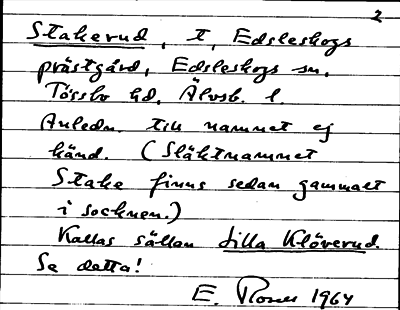 2
Stakerud, t, Edsleskogs
prästgård, Edsleskogs sn,
Tössbo hd, Älvsb. l.
Anledn. till namnet ej
känd. (Släktnamnet
Stake finns sedan gammalt
i socknen.)
Kallas sällan Lilla Klöverud.
Se detta!
E. 1964